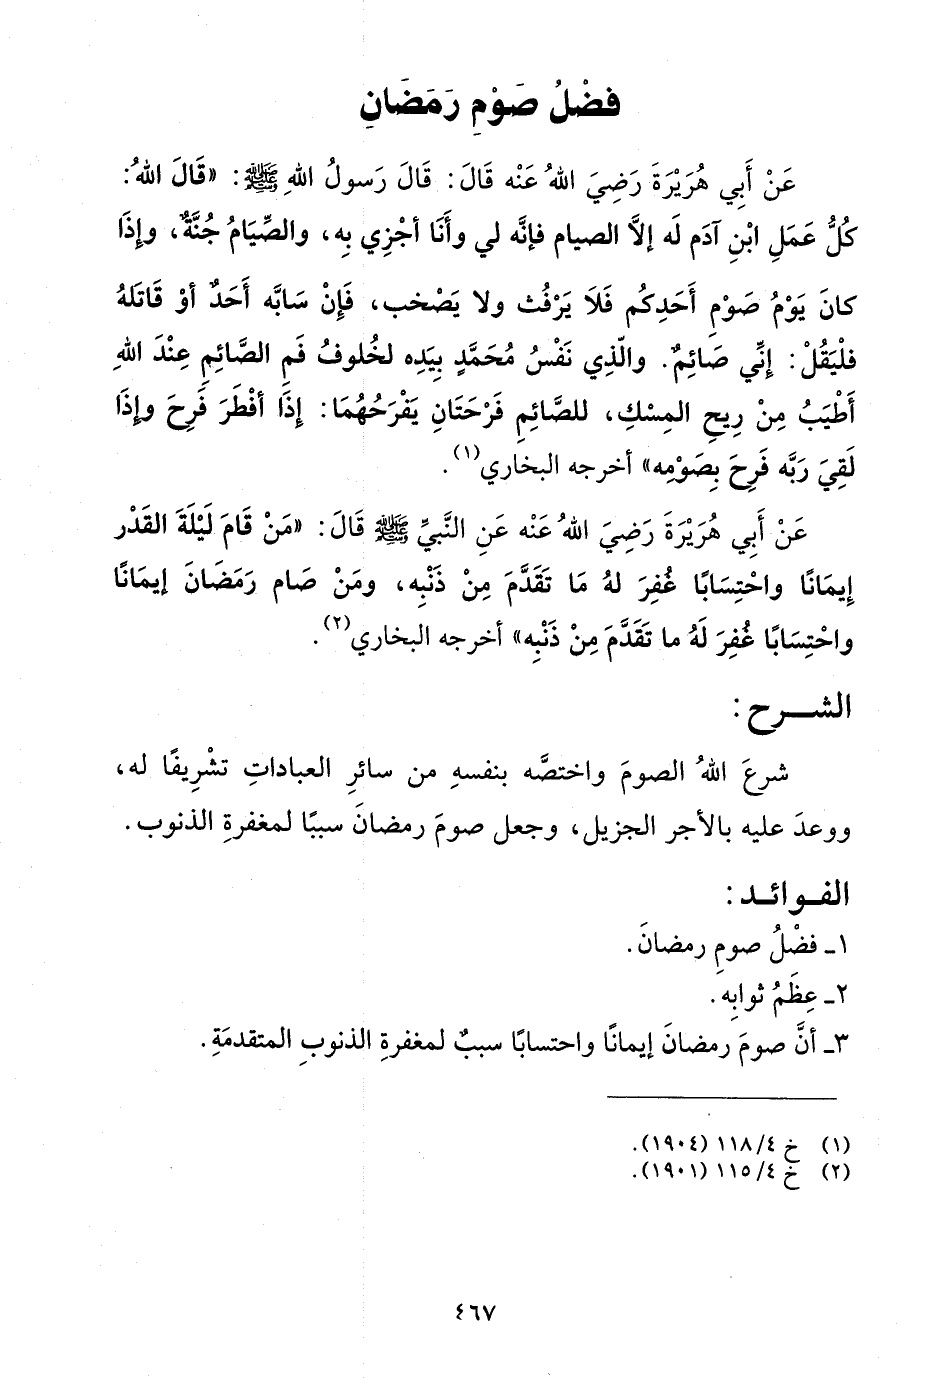 فضْلُ صَوْمِ رَمَضَانِ
عَنْ أَبي هُرَيْرَةَ رَضِيَ اللهُ عَنْه قَالَ: قَالَ رَسولُ اللهِ ﷺ: «قَالَ اللهُ:
كُلُّ عَمَلِ ابْنِ آدَم لَه إلاَّ الصيام فإنَّه لي وأَنَا أجْزِي بِه، والصِّيَامُ جُنَّةٌ، وإذَا
كانَ يَوْمُ صَوْمِ أَحَدِكُم فَلَا يَرْفُث ولا يَصْخب، فَإِنْ سَابَّه أَحَدٌ أوْ قَاتَلَهُ
فلْيَقُلْ: إنِّي صَائِمٌ. والّذِي نَفْسُ مُحَمَّدٍ بِيَدِه لخُلوفُ فَمِ الصَّائِمِ عِنْدَ اللهِ
أَطْيَبُ مِنْ رِيحِ المِسْكِ، للصَّائِمِ فَرْحَتَانِ يَفْرَحُهُمَا: إذَا أفْطَرَ فَرِحَ وإذَا
لَقِيَ رَبَّه فَرِحَ بِصَوْمِه» أخرجه البخاري(١).
عَنْ أَبي هُرَيْرَةَ رَضِيَ اللهُ عَنْه عَنِ النَّبيِّ ﷺ قَالَ: «مَنْ قَامَ لَيْلَةَ القَدْر
إيمَانًا واحْتِسَابًا غُفِرَ لهُ مَا تَقَدَّمَ مِنْ ذَنْبِه، ومَنْ صَام رَمَضَانَ إيمَانًا
واحْتِسَابًا غُفِرَ لَهُ ما تَقَدَّمَ مِنْ ذَنْبِه» أخرجه البخاري(٢).
الشـــرح:
شرعَ اللهُ الصومَ واختصَّه بنفسهِ من سائرِ العباداتِ تشْرِيفًا له،
ووعدَ عليه بالأجر الجزيل، وجعل صومَ رمضانَ سببًا لمغفرةِ الذنوب.
الفـوائـد:
١ـ فضْلُ صومِ رمضانَ.
٢ـ عِظَمُ ثوابِه.
٣ـ أنَّ صومَ رمضانَ إيمانًا واحتسابًا سببٌ لمغفرةِ الذنوبِ المتقدمَةِ.
(١) خ ٤/ ١١٨ (١٩٠٤).
(٢) خ ٤/ ١١٥ (١٩٠١).
٤٦٧